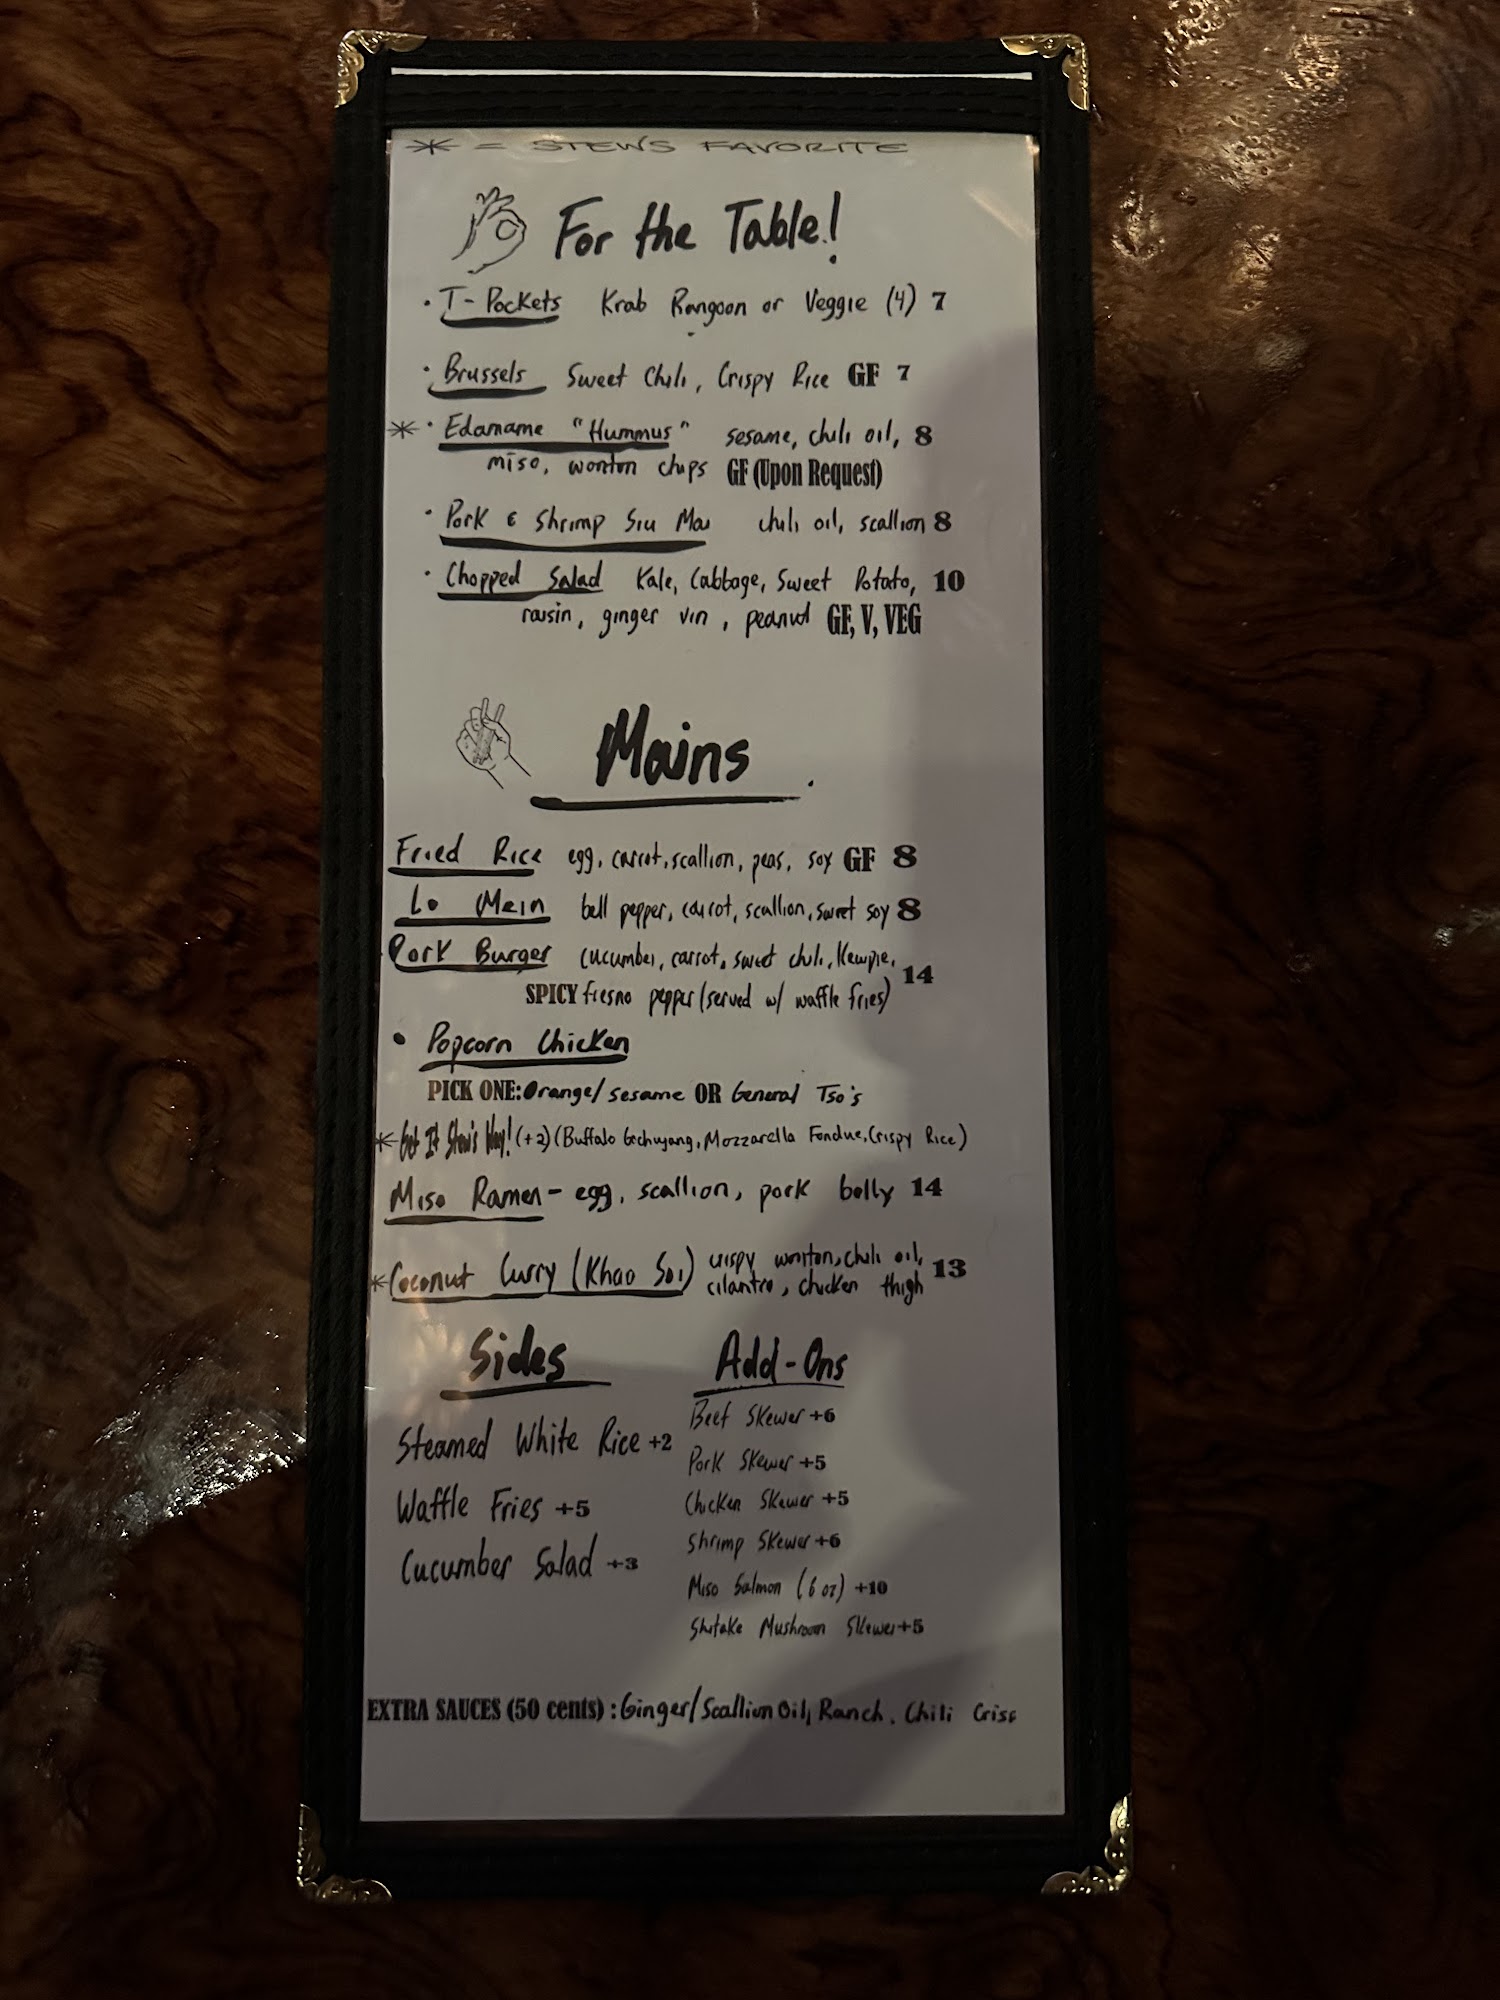 * = STEWS FAVORITE
For the Table!
• T-Pockets Krab Rangoon or Veggie (4) 7
• Brussels Sweet Chili, Crispy Rice GF 7
* • Edamame "Hummus" sesame, chili oil, 8
miso, wonton chips GF (Upon Request)
• Pork & Shrimp Siu Mai chili oil, scallion 8
• Chopped Salad Kale, Cabbage, Sweet Potato, 10
raisin, ginger vin, peanut GF, V, VEG
Mains
Fried Rice egg, carrot, scallion, peas, soy GF 8
Lo Mein bell pepper, carrot, scallion, sweet soy 8
Pork Burger cucumber, carrot, sweet chili, Kewpie, 14
SPICY fresno pepper (served w/ waffle fries)
• Popcorn Chicken
PICK ONE: Orange/sesame OR General Tso's
* Get It Stew's Way! (+2) (Buffalo Gochujang, Mozzarella Fondue, Crispy Rice)
Miso Ramen - egg, scallion, pork belly 14
* Coconut Curry (Khao Soi) crispy wonton, chili oil, 13
cilantro, chicken thigh
Sides
Steamed White Rice +2
Waffle Fries +5
Cucumber Salad +3
Add-Ons
Beef Skewer +6
Pork Skewer +5
Chicken Skewer +5
Shrimp Skewer +6
Miso Salmon (6 oz) +10
Shitake Mushroom Skewer +5
EXTRA SAUCES (50 cents) : Ginger/Scallion Oil, Ranch, Chili Crisp